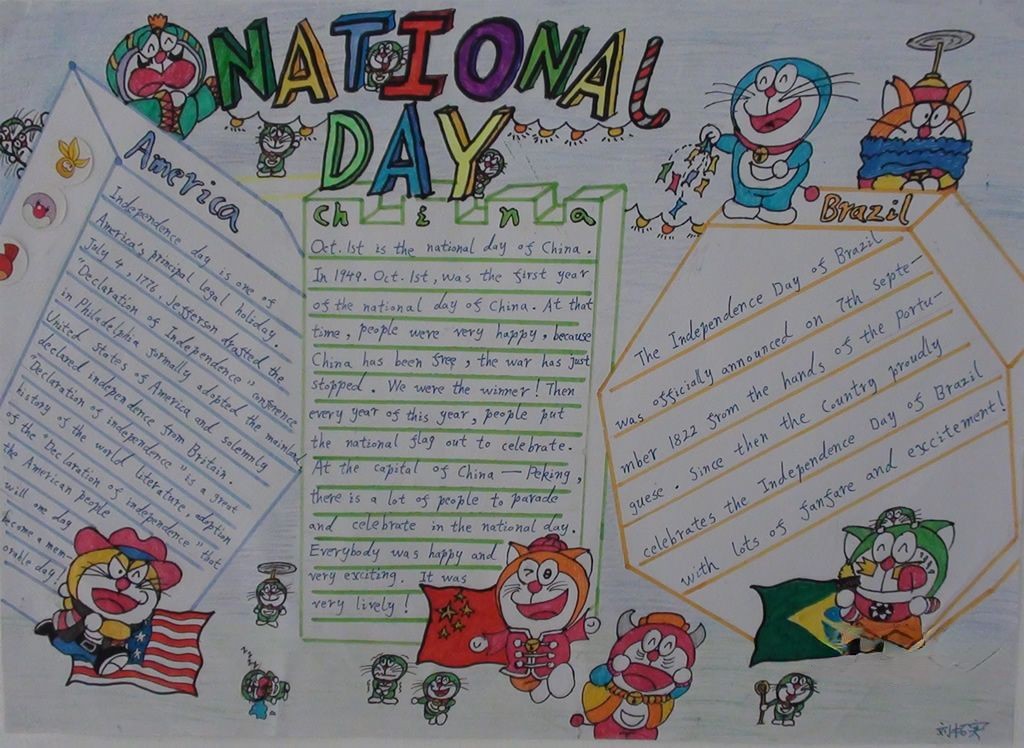 NATIONAL
DAY
America
Independence day is one of
America's principal legal holiday.
July 4, 1776, Jefferson drafted the
"Declaration of Independence" conference
in Philadelphia formally adopted the mainland,
United States of America and solemnly
declared independence from Britain.
"Declaration of independence" is a great
history of the world literature, adoption
of the "Declaration of independence" that
the American people
will one day
become a mem-
orable day!
China
Oct. 1st is the national day of China.
In 1949. Oct. 1st, was the first year
of the national day of China. At that
time, people were very happy, because
China has been free, the war has just
stopped. We were the winner! Then
every year of this year, people put
the national flag out to celebrate.
At the capital of China — Peking,
there is a lot of people to parade
and celebrate in the national day.
Everybody was happy and
very exciting. It was
very lively!
Brazil
The Independence Day of Brazil
was officially announced on 7th Septe-
mber 1822 from the hands of the Portu-
guese. Since then the Country proudly
celebrates the Independence Day of Brazil
with lots of fanfare and excitement!